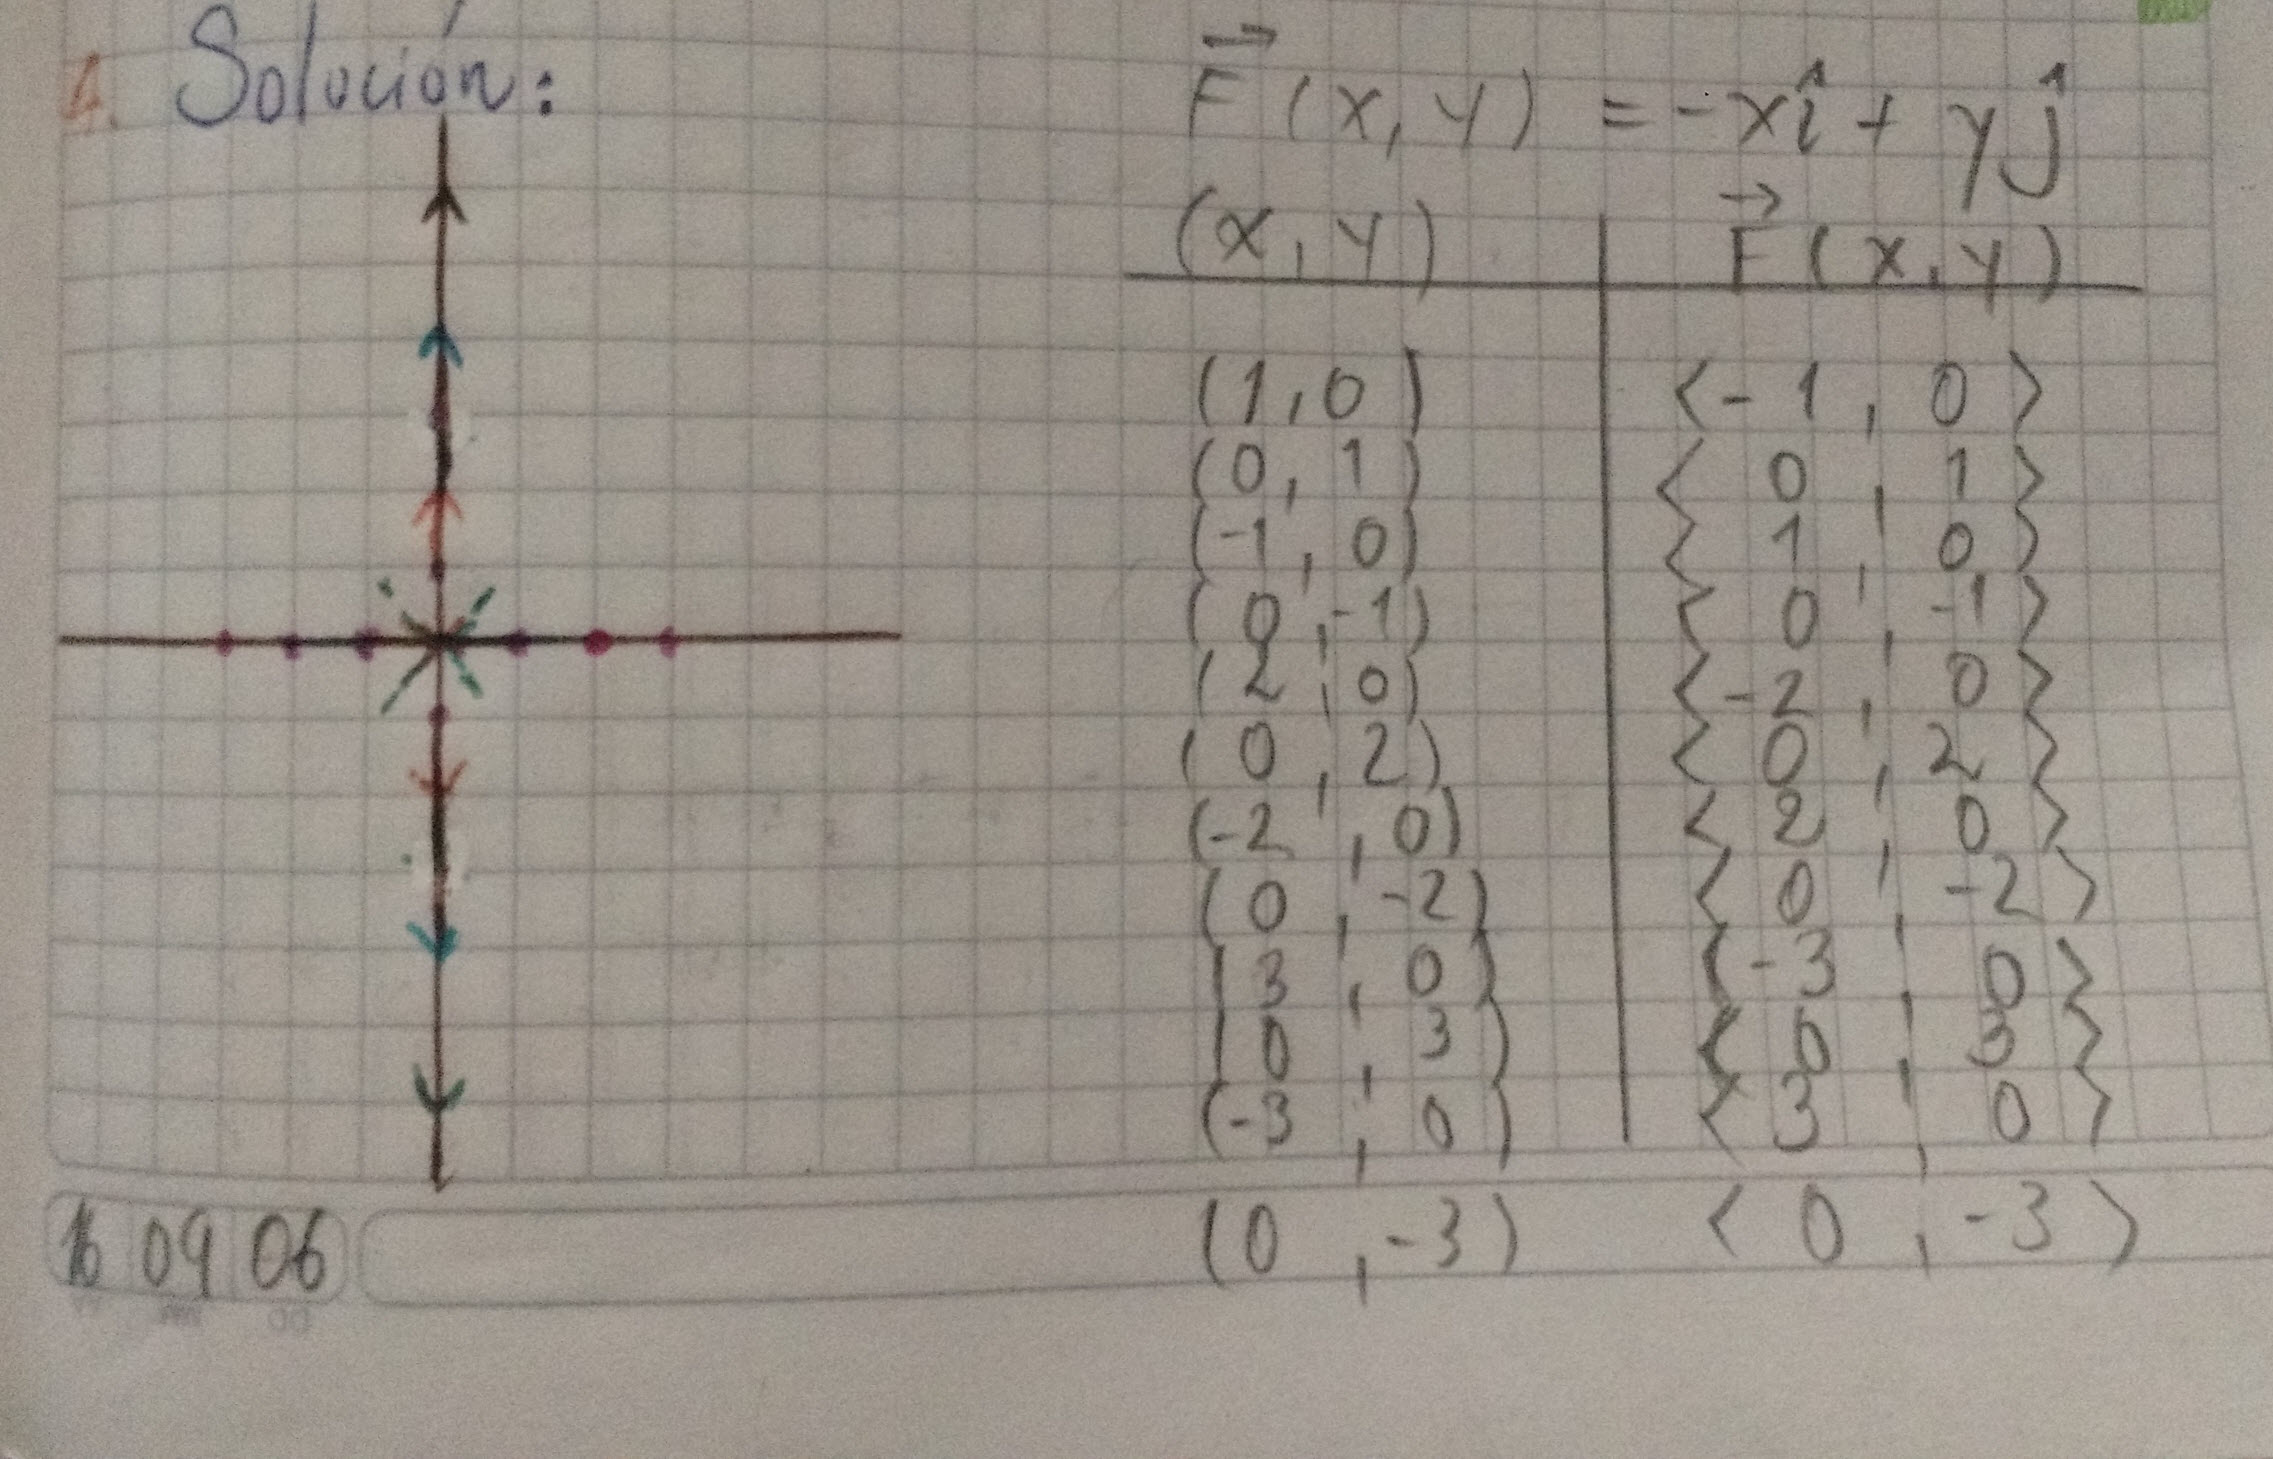 4. Solución:
F(x, y) = -xî + yĵ
(x, y) F(x, y)
(1, 0) <-1, 0>
(0, 1) <0, 1>
(-1, 0) <1, 0>
(0, -1) <0, -1>
(2, 0) <-2, 0>
(0, 2) <0, 2>
(-2, 0) <2, 0>
(0, -2) <0, -2>
(3, 0) <-3, 0>
(0, 3) <0, 3>
(-3, 0) <3, 0>
(0, -3) <0, -3>
16 09 06